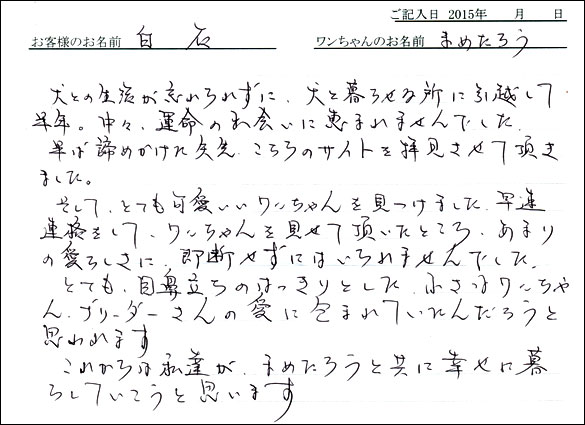 ご記入日 2015年 月 日
お客様のお名前 白石 ワンちゃんのお名前 まめたろう
犬との生活が忘れられずに、犬と暮らせる所に引越して
半年。中々、運命の出会いに恵まれませんでした。
半ば諦めかけた矢先、こちらのサイトを拝見させて頂き
ました。
そして、とても可愛いいワンちゃんを見つけました。早速
連絡をして、ワンちゃんを見せて頂いたところ、あまり
の愛らしさに、即断せずにはいられませんでした。
とても、目鼻立ちのはっきりとした、小さなワンちゃ
ん、ブリーダーさんの愛に包まれていたんだろうと
思われます
これからは私達が、まめたろうと共に幸せに暮
らしていこうと思います